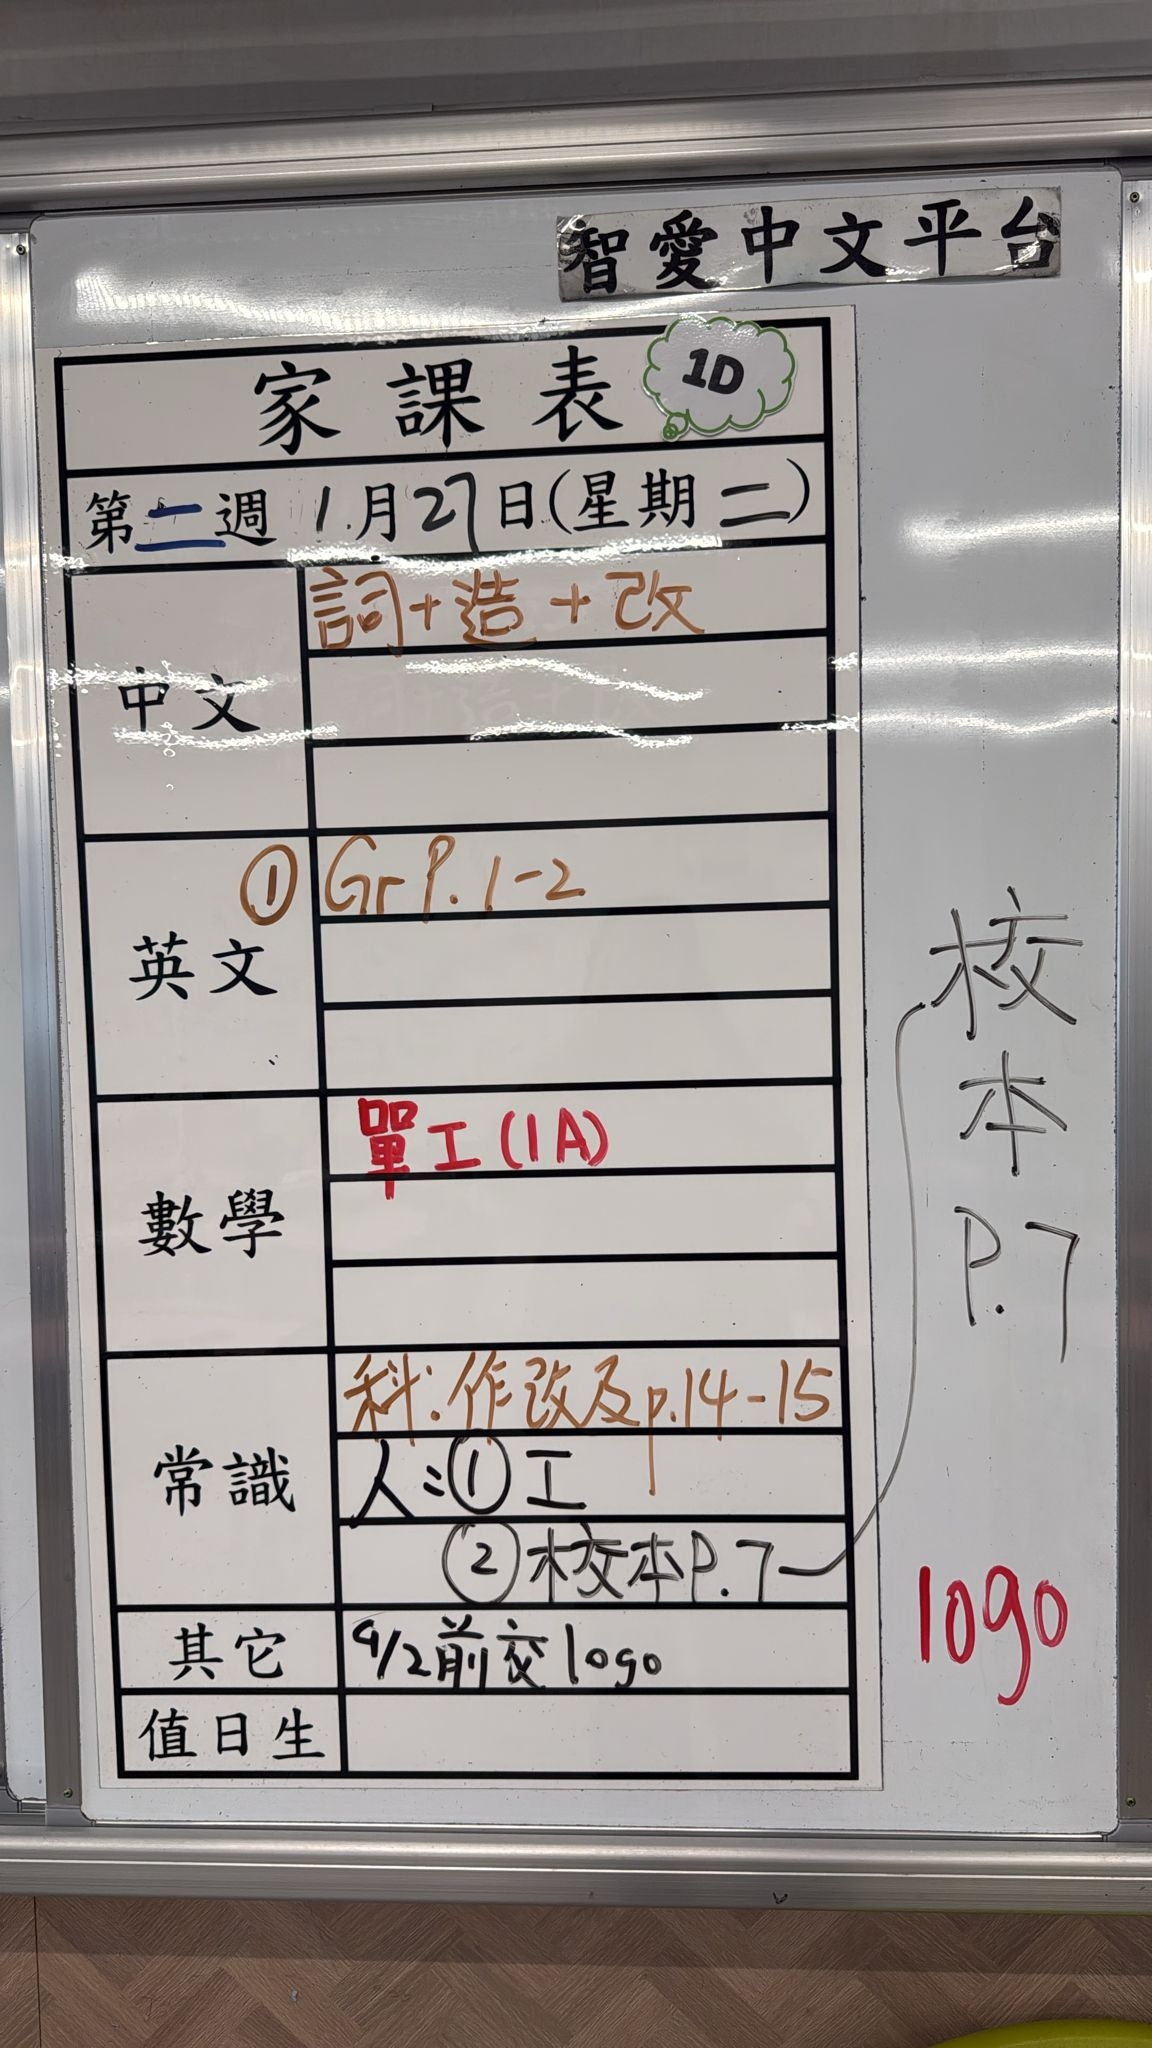 智愛中文平台
家課表 1D
第二週 1月27日(星期二)
中文
詞+造+改
英文
① Gr P.1-2
數學
單工(1A)
常識
科:作改及p.14-15
人:①工
②校本P.7
其它
9/2前交logo
值日生
校本P.7
logo